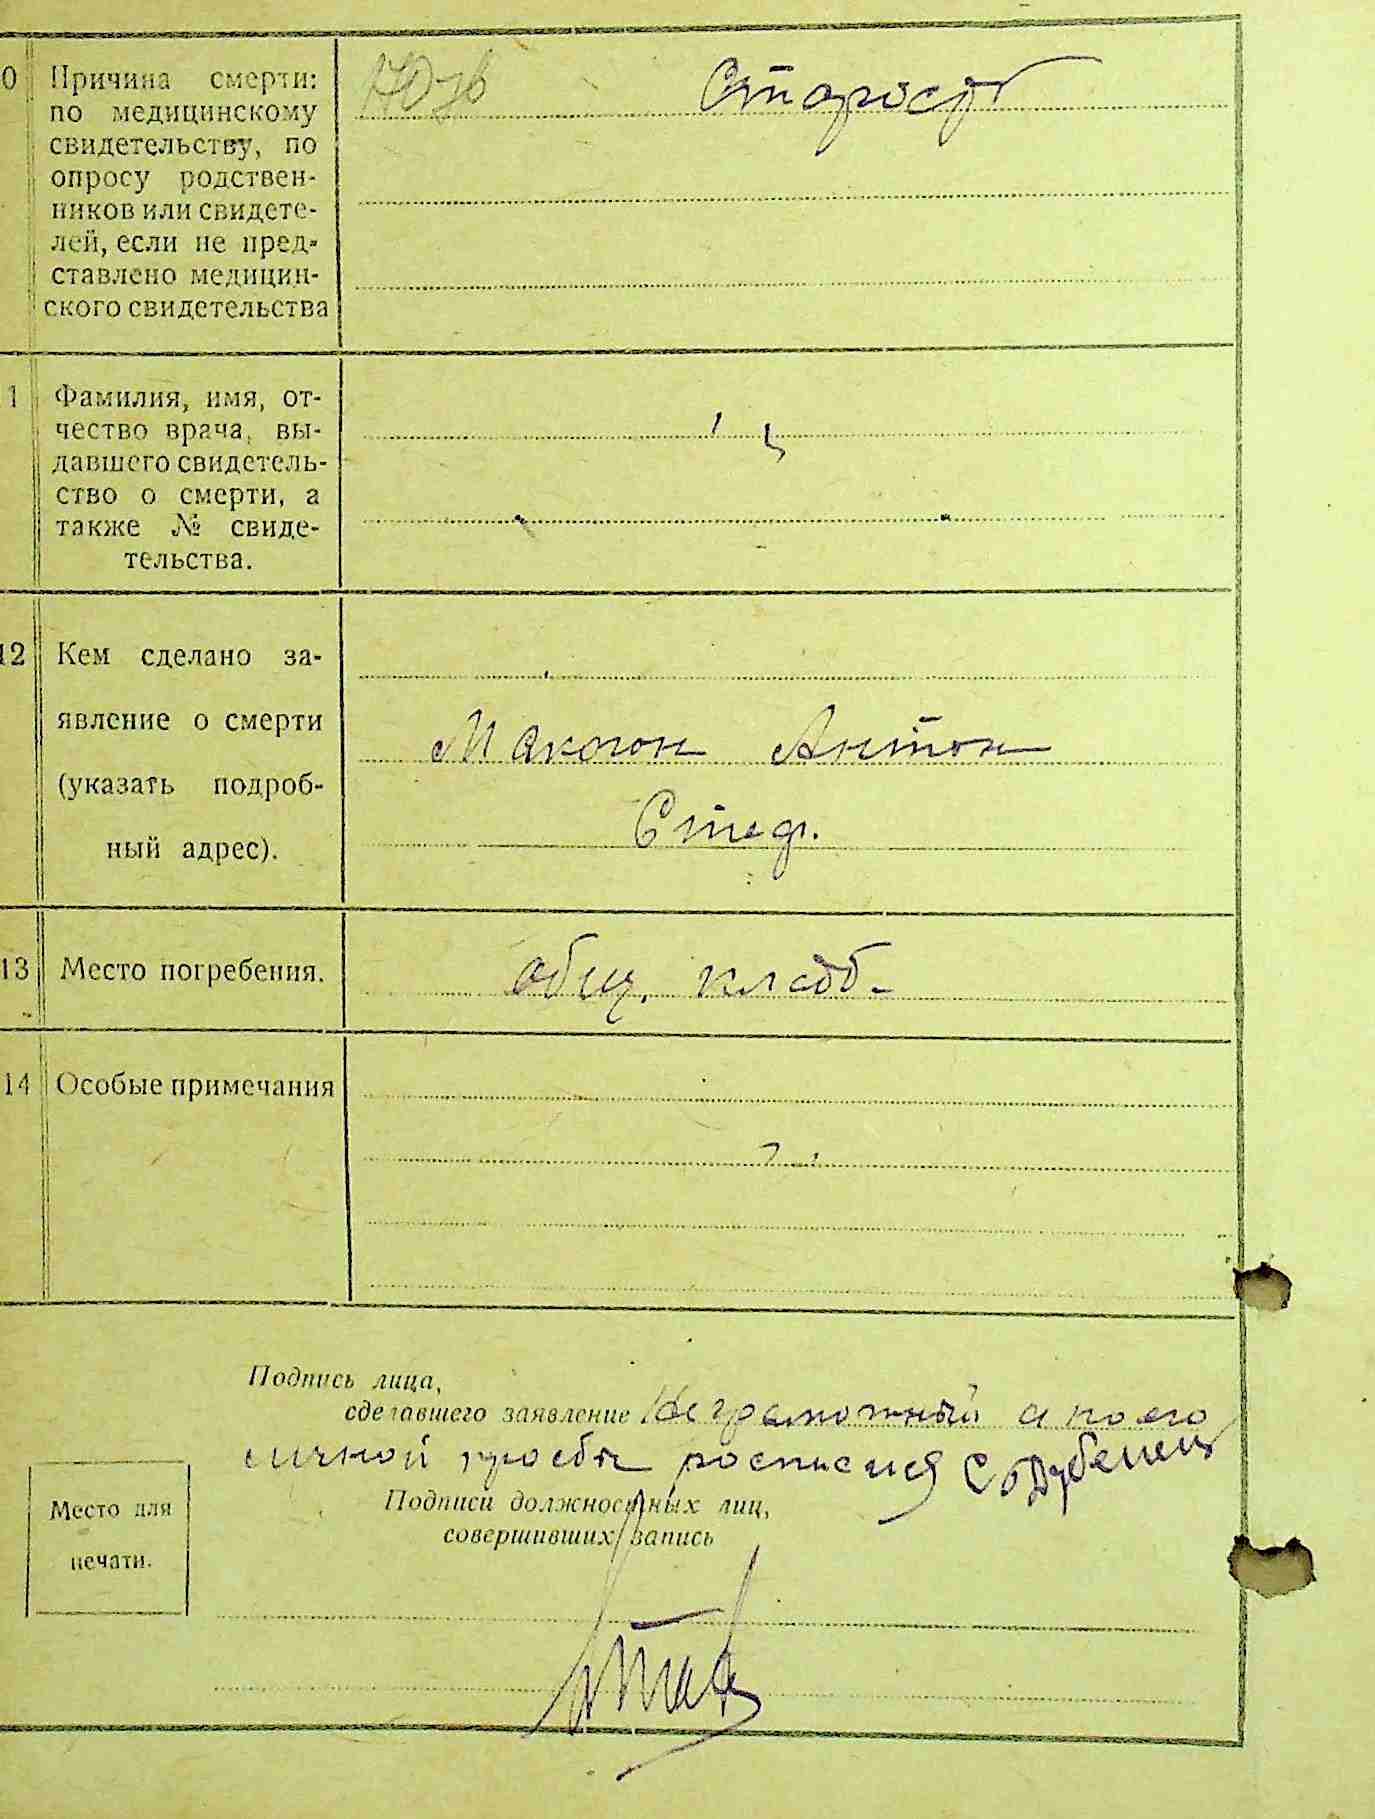 0 Причина смерти: Старость
по медицинскому
свидетельству, по
опросу родствен-
ников или свидете-
лей, если не пред-
ставлено медицин-
ского свидетельства
1 Фамилия, имя, от-
чество врача, вы-
давшего свидетель-
ство о смерти, а
также № свиде-
тельства.
12 Кем сделано за-
явление о смерти
(указать подроб-
ный адрес).
Макогон Антон
Стеф.
13 Место погребения. общ. кладб.
14 Особые примечания
Подпись лица,
сделавшего заявление Неграмотный а по его
личной просьбе
Подписи должностных лиц,
совершивших запись
Место для
печати.